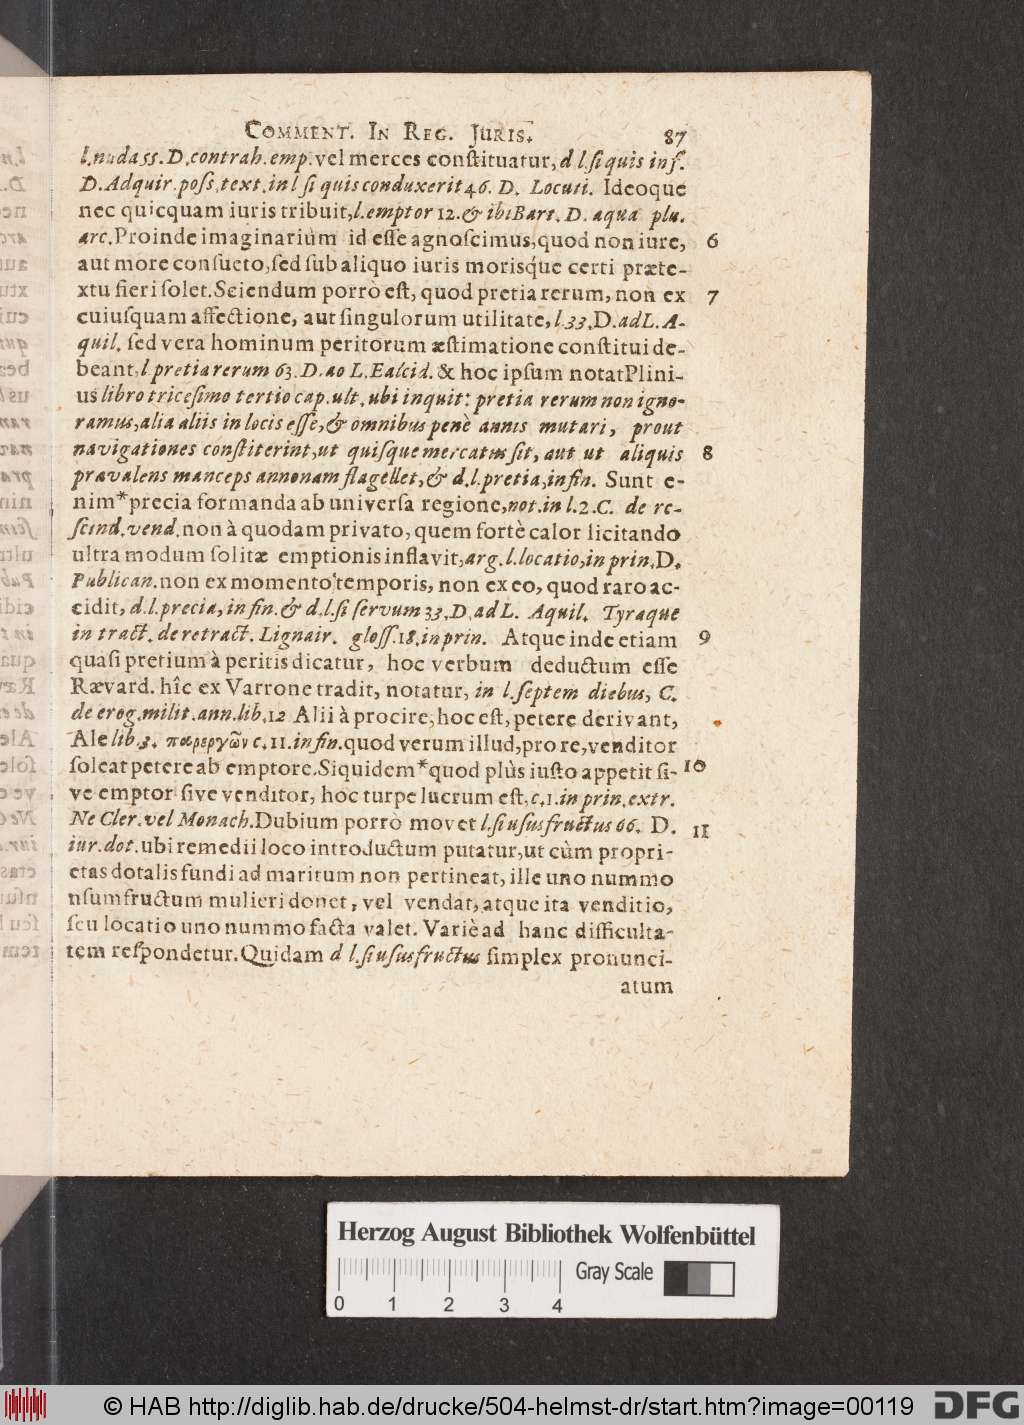 COMMENT. IN REG. JURIS. 87
l. nuda ss. D. contrah. emp. vel merces conſtituatur, d l. ſi quis inf.
D. Adquir. poſs. text. in l ſi quis conduxerit 46. D. Locati. Ideoque
nec quicquam iuris tribuit, l. emptor 12. & ibi Bart. D. aqua plu.
arc. Proinde imaginarium id eſſe agnoſcimus, quod non iure, 6
aut more conſueto, ſed ſub aliquo iuris morisq́ue certi præte-
xtu fieri ſolet. Sciendum porrò eſt, quod pretia rerum, non ex 7
cuiuſquam affectione, aut ſingulorum utilitate, l. 33. D. ad L. A-
quil. ſed vera hominum peritorum æſtimatione conſtitui de-
beant, l pretia rerum 63. D. ao L. Ealcid. & hoc ipſum notat Plini-
us libro triceſimo tertio cap. ult. ubi inquit: pretia rerum non igno-
ramus, alia aliis in locis eſſe, & omnibus penè annis mutari, prout
navigationes conſtiterint, ut quiſque mercatus ſit, aut ut aliquis 8
prævalens manceps annonam flagellet, & d. l. pretia, in fin. Sunt e-
nim* precia formanda ab univerſa regione, not. in l. 2. C. de re-
ſcind. vend. non à quodam privato, quem fortè calor licitando
ultra modum ſolitæ emptionis inflavit, arg. l. locatio, in prin. D.
Publican. non ex momento temporis, non ex eo, quod raro ac-
cidit, d. l. precia, in fin. & d. l. ſi ſervum 33. D. ad L. Aquil. Tyraque
in tract. de retract. Lignair. gloſſ. 18. in prin. Atque inde etiam 9
quaſi pretium à peritis dicatur, hoc verbum deductum eſſe
Rævard. hîc ex Varrone tradit, notatur, in l. ſeptem diebus, C.
de erog. milit. ann. lib. 12 Alii à procire, hoc eſt, petere derivant,
Ale lib. 3. παρεργῶν c. 11. in fin. quod verum illud, pro re, venditor
ſoleat petere ab emptore. Siquidem* quod plùs iuſto appetit ſi- 10
ve emptor ſive venditor, hoc turpe lucrum eſt, c. 1. in prin. extr.
Ne Cler. vel Monach. Dubium porrò movet l. ſi uſusfructus 66. D. 11
iur. dot. ubi remedii loco introductum putatur, ut cùm propri-
etas dotalis fundi ad maritum non pertineat, ille uno nummo
uſumfructum mulieri donet, vel vendat, atque ita venditio,
ſeu locatio uno nummo facta valet. Variè ad hanc difficulta-
tem reſpondetur. Quidam d l. ſi uſusfructus ſimplex pronunci-
atum
Herzog August Bibliothek Wolfenbüttel
Gray Scale
0 1 2 3 4
© HAB http://diglib.hab.de/drucke/504-helmst-dr/start.htm?image=00119
DFG